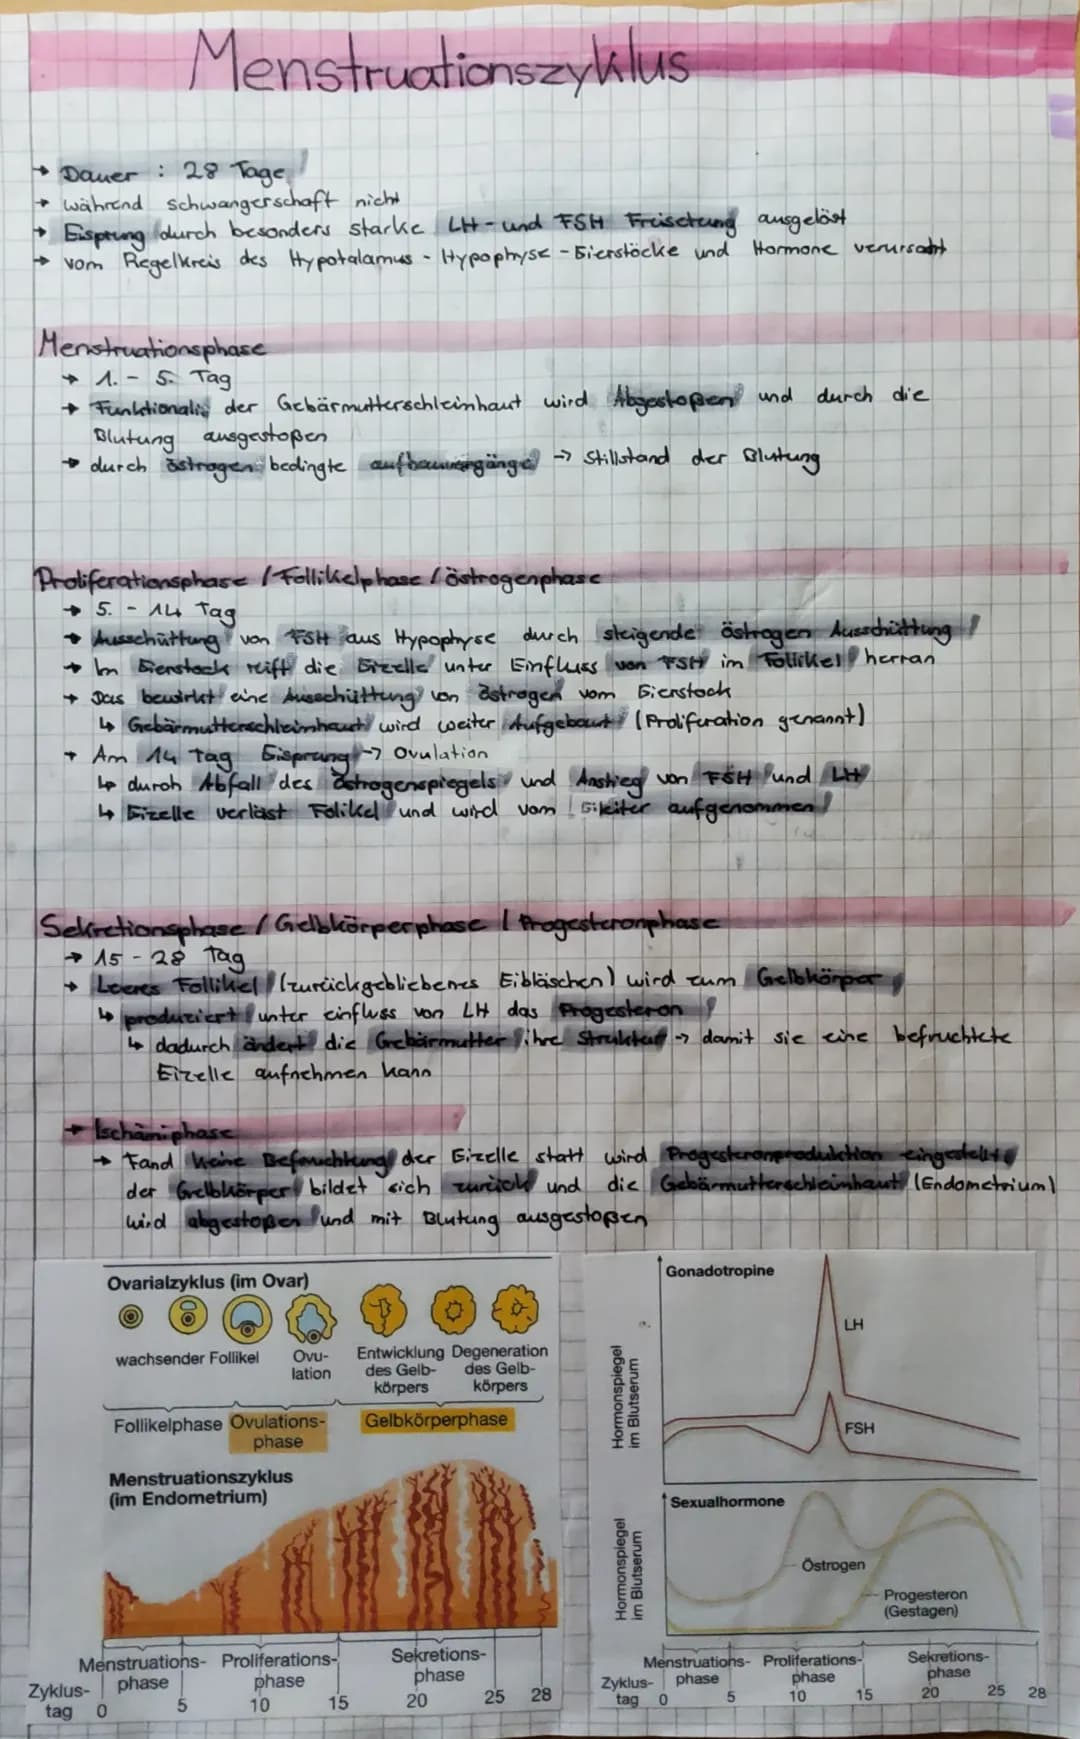 Menstruationszyklus
→ Dauer : 28 Tage
→ während schwangerschaft nicht
→ Eisprung durch besonders starke LH - und FSH Freisetzung ausgelöst
→ vom Regelkreis des Hypotalamus - Hypophyse - Eierstöcke und Hormone verursacht
Menstruationsphase
→ 1. - 5. Tag
→ Funktionalis der Gebärmutterschleimhaut wird Abgestoßen und durch die
Blutung ausgestoßen
→ durch östrogen bedingte aufbauvorgänge → Stillstand der Blutung
Proliferationsphase / Follikelphase / östrogenphase
→ 5. - 14 Tag
→ Ausschüttung von FSH aus Hypophyse durch steigende östrogen Ausschüttung
→ Im Eierstock reift die Eizelle unter Einfluss von FSH im Follikel herran
→ Das bewirkt eine Ausschüttung von östrogen vom Eierstock
↳ Gebärmutterschleimhaut wird weiter Aufgebaut (Proliferation genannt)
→ Am 14 Tag Eisprung → Ovulation
↳ durch Abfall des östrogenspiegels und Anstieg von FSH und LH
↳ Eizelle verläst Folikel und wird vom Eileiter aufgenommen
Sekretionsphase / Gelbkörperphase / Progesteronphase
→ 15 - 28 Tag
→ Leeres Follikel (zurückgebliebenes Eibläschen) wird zum Gelbkörper
↳ produziert unter einfluss von LH das Progesteron
↳ dadurch ändert die Gebärmutter ihre Struktur → damit sie eine befruchtete
Eizelle aufnehmen kann
→ Ischämiphase
→ Fand keine Befruchtung der Eizelle statt wird Progesteronproduktion eingestellt,
der Gelbkörper bildet sich zurück und die Gebärmutterschleimhaut (Endometrium)
wird abgestoßen und mit Blutung ausgestoßen
Ovarialzyklus (im Ovar)
wachsender Follikel
Ovu-
lation
Entwicklung
des Gelb-
körpers
Degeneration
des Gelb-
körpers
Follikelphase
Ovulations-
phase
Gelbkörperphase
Menstruationszyklus
(im Endometrium)
Menstruations-
phase
Proliferations-
phase
Sekretions-
phase
Zyklus-
tag 0 5 10 15 20 25 28
Gonadotropine
LH
FSH
Hormonspiegel
im Blutserum
Sexualhormone
Östrogen
Progesteron
(Gestagen)
Hormonspiegel
im Blutserum
Menstruations-
phase
Proliferations-
phase
Sekretions-
phase
Zyklus-
tag 0 5 10 15 20 25 28